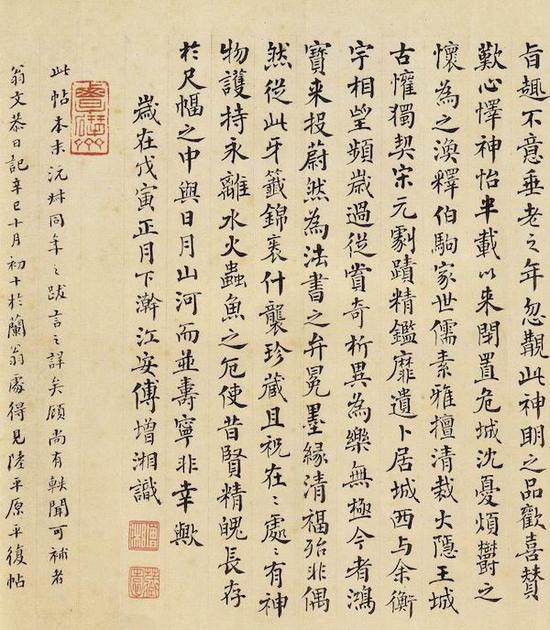 旨趣不意垂老之年忽覩此神明之品歡喜贊
歎心懌神怡半載以來閉置危城沈憂煩鬱之
懷為之渙釋伯駒家世儒素雅擅清裁大隱王城
古懽獨契宋元劇蹟精鑑靡遺卜居城西与余衡
宇相望頻歲過從賞奇析異為樂無極今者鴻
寶來投蔚然為法書之弁冕墨緣清福殆非偶
然從此牙籤錦裹什襲珍藏且祝在〻處〻有神
物護持永離水火蟲魚之厄使昔賢精魄長存
於尺幅之中與日月山河而並壽寧非幸歟
歲在戊寅正月下澣江安傅增湘識
增湘
藏園
此帖本末沅叔同年之跋言之詳矣顧尚有軼聞可補者
翁文恭日記辛巳十月初十於蘭翁處得見陸平原平復帖